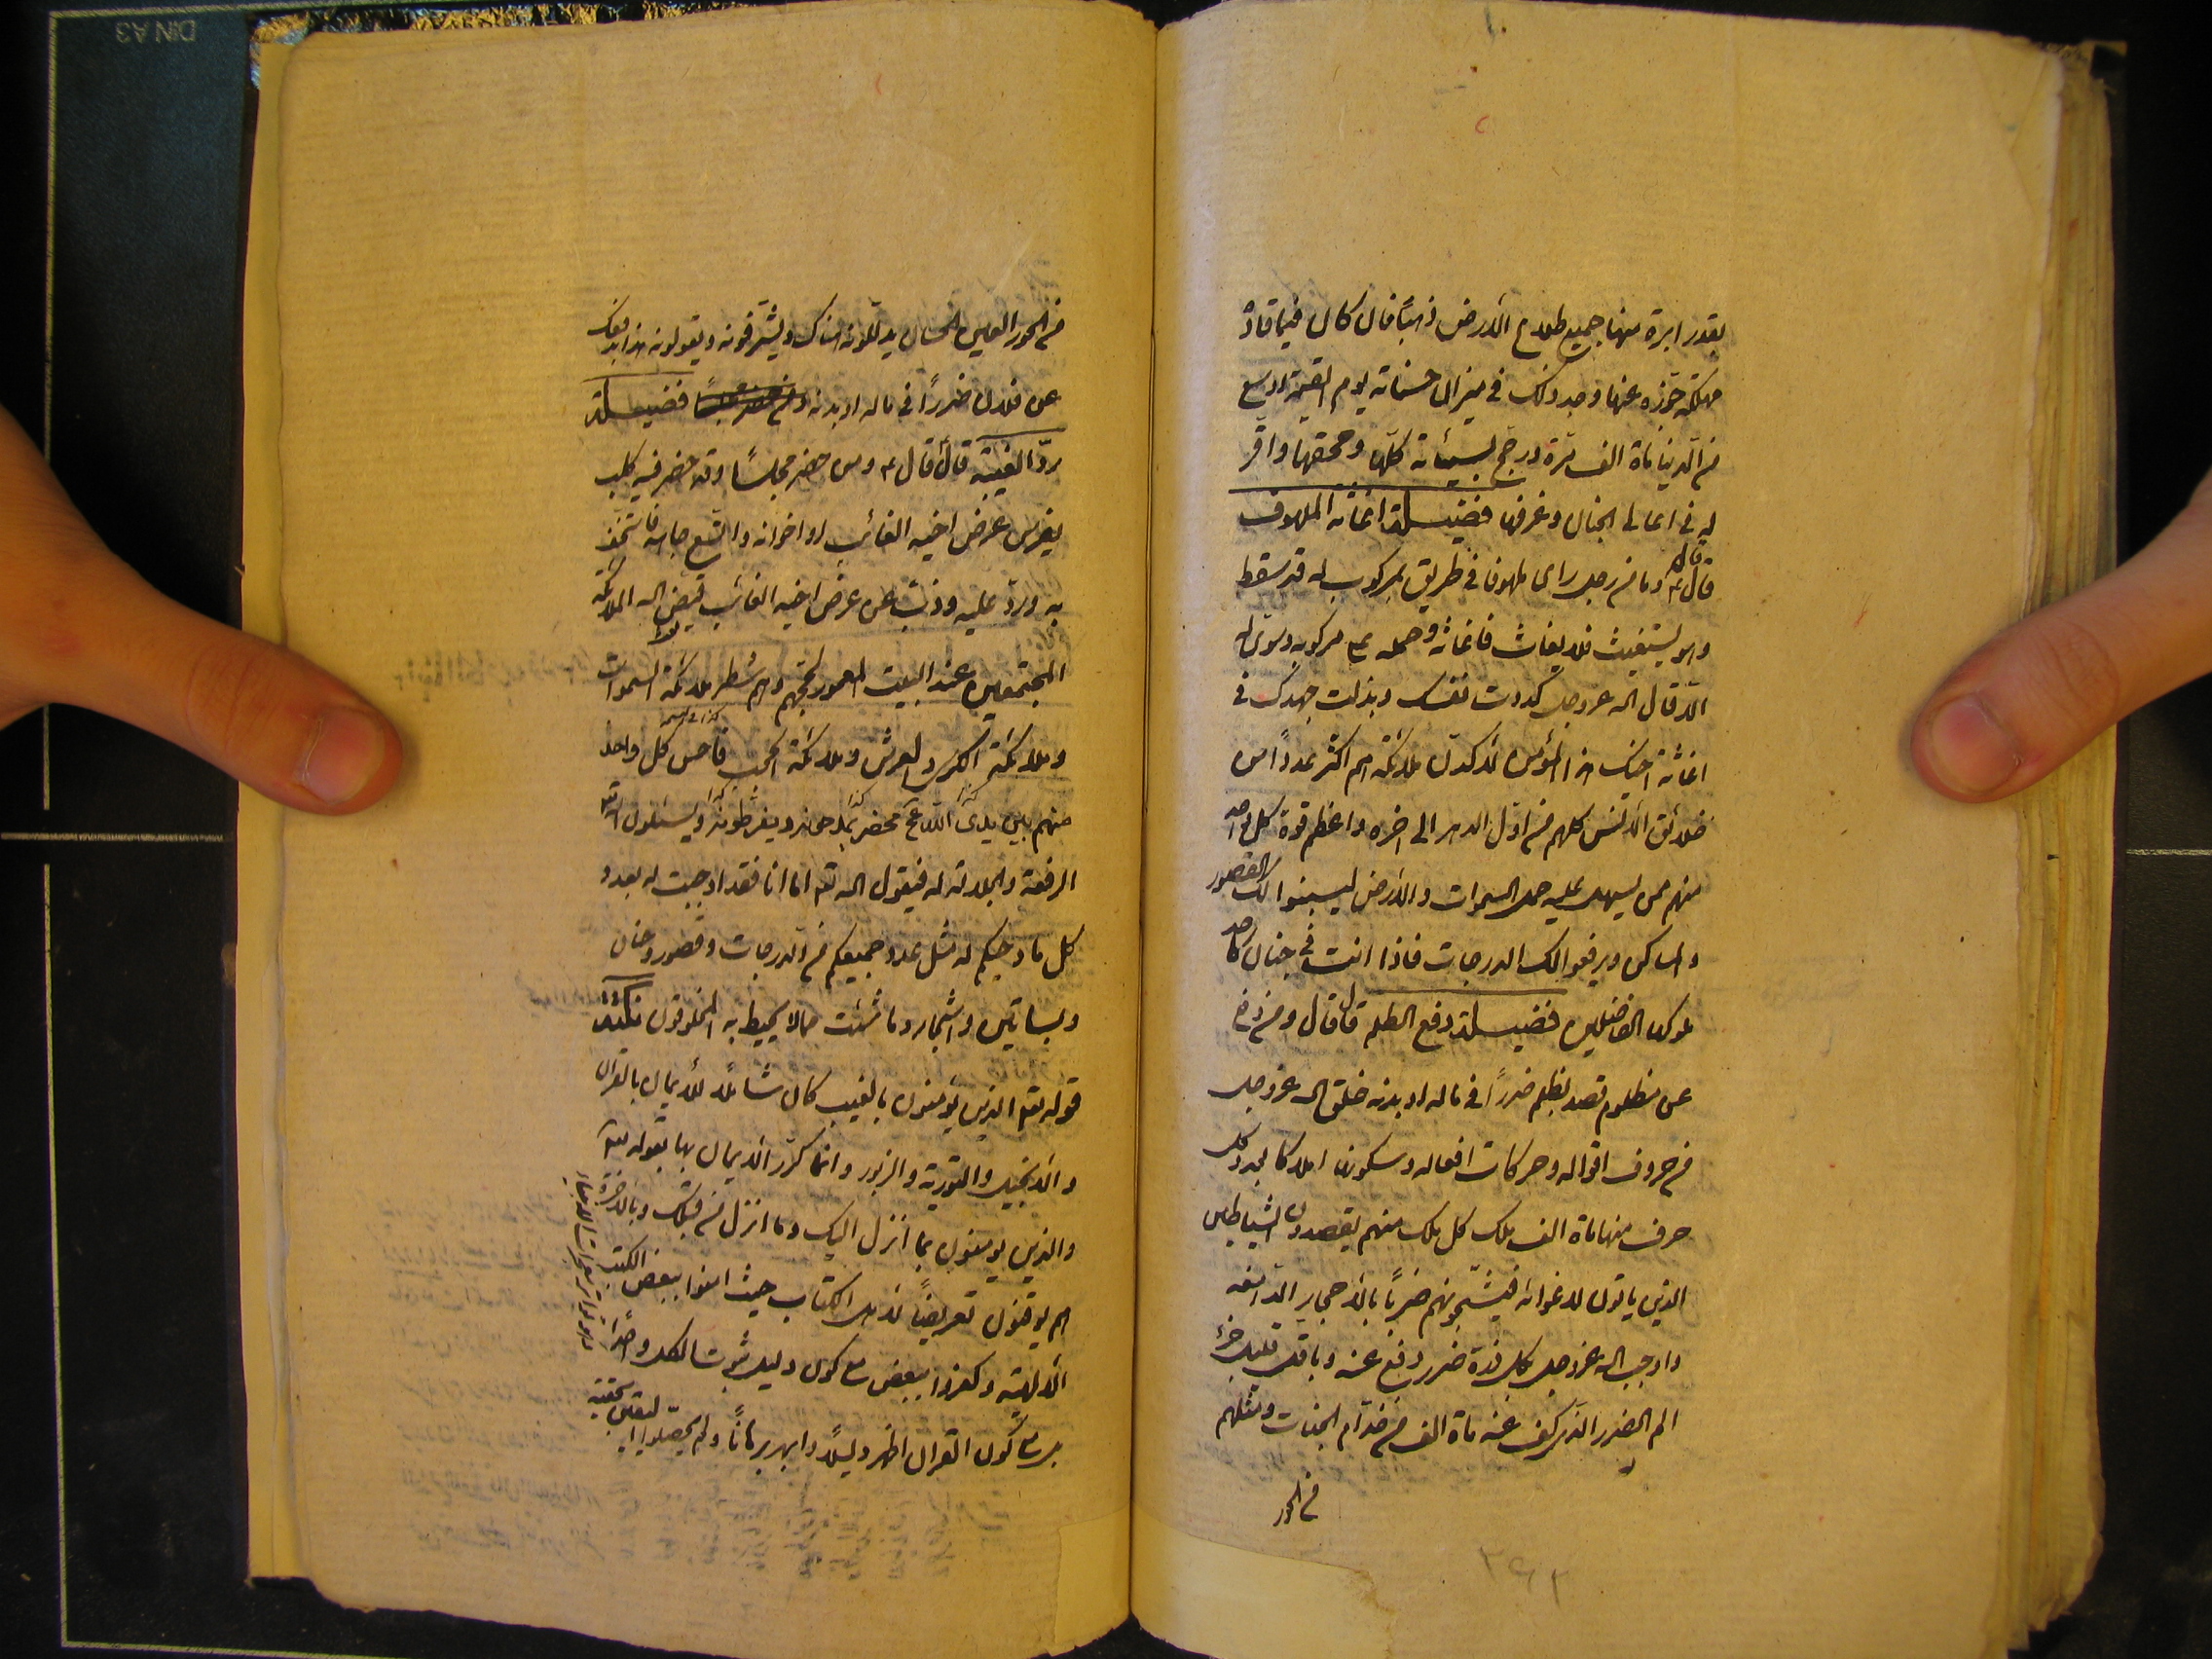 بقدر ابرة منها جميع طلاع الارض ذهبا فان كان فيما قاده
مهلكة جوزه عنها وجد ذلك في ميزان حسناته يوم القيمة اوسع
من الدنيا مائة الف مرة ورجح بسيئاته كلها ومحقها واقر
له في اعالى الجنان وغرفها فضيلة اغاثة الملهوف
قال قال ع وما من رجل راى ملهوفا في طريق بمركوب له قد سقط
وهو يستغيث فلا يغاث فاغاثه وحمله على مركوبه وسوى له
الا قال الله عز وجل كددت نفسك وبذلت جهدك في
اغاثة اخيك هذا المؤمن لاكدن ملائكة هم اكثر عددا من
خلائق الانس كلهم من اول الدهر الى اخره واعظم قوة كل واحد
منهم ممن يسهل عليه حمل السموات والارض ليبنوا لك القصور
والمساكن ويرفعوا لك الدرجات فاذا انت في جناني كاحد
ملوكها الفاضلين فضيلة دفع الظلم قال قال ومن دفع
عن مظلوم قصد بظلم ضررا في ماله او بدنه خلق الله عز وجل
من حروف اقواله وحركات افعاله وسكونها املاكا بعدد كل
حرف منها مائة الف ملك كل ملك منهم يقصدون الشياطين
الذين ياتون لاغوائه فيشجونهم ضربا بالاحجار الدامغه
واوجب الله عز وجل بكل ذرة ضرر دفع عنه وباقل قليل جزء
الم الضرر الذى كف عنه مائة الف من خدام الجنات ومثلهم
من الحور
من الحور العين الحسان يدللونه هناك ويشرفونه ويقولون هذا بدفعك
عن فلان ضررا في ماله او بدنه فضيلة
رد الغيبة قال قال ع ومن حضر مجلسا وقد حضر فيه كلب
يفرس عرض اخيه الغائب او اخوانه واتسع جاهه فاستخف
به ورد عليه وذب عن عرض اخيه الغائب قيض الله الملائكة
المجتمعين عند البيت المعمور لحجهم وهم شطر ملائكة السموات
وملائكة الكرسى والعرش وملائكة الحجب فاحسن كل واحد
منهم بين يدى الله تع محضره يمدحونه ويقرظونه ويسئلون الله تع
الرفعة والجلالة له فيقول الله تع اما انا فقد اوجبت له بعدد
كل مادحيكم له مثل عدد جميعكم من الدرجات وقصور وجنان
وبساتين واشجار وما شئت مما لا يحيط به المخلوقون
قوله تع الذين يؤمنون بالغيب كان شاملا للايمان بالقران
والانجيل والتورية والزبور وانما كرر الايمان بها بقوله تع
والذين يؤمنون بما انزل اليك وما انزل من قبلك وبالاخرة
هم يوقنون تعريضا لاهل الكتاب حيث امنوا ببعض الكتب
الالهية وكفروا ببعض مع كون دليل ثبوت الكل واحدا
بل مع كون القران اظهر دليلا وابهر برهانا ولم يحصلوا